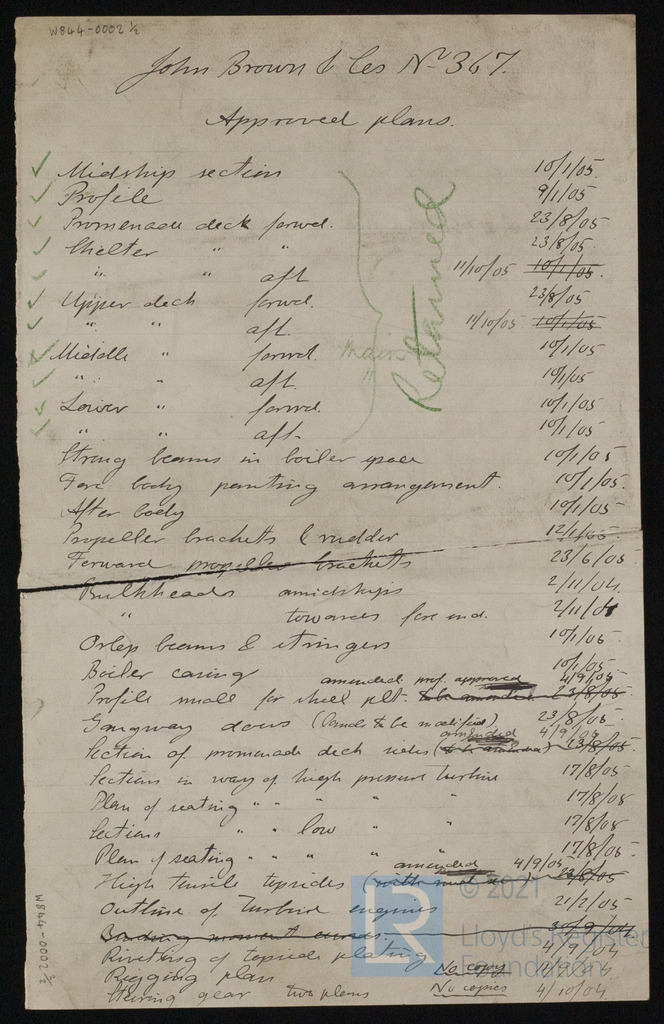 W844-0002 ½
John Brown & Cos No 367.
Approved plans.
✓ Midship section 10/1/05.
✓ Profile 9/1/05
✓ Promenade deck forwd. 23/8/05
✓ Shelter " " 23/8/05.
✓ " " aft 11/10/05 10/1/05.
✓ Upper deck forwd. 23/8/05
✓ " " aft. 11/10/05 10/1/05.
✓ Middle " forwd. main 10/1/05
✓ " " aft. " 10/1/05
✓ Lower " forwd. 10/1/05
✓ " " aft. 10/1/05
Retained
Strong beams in boiler space 10/1/05
Fore body panting arrangement. 10/1/05.
After body 10/1/05
Propeller brackets & rudder 12/1/05.
Forward propeller brackets 23/6/05
Bulkheads amidships 2/11/04.
" towards fore end. 2/11/04
Orlop beams & stringers 10/1/05
Boiler casing 10/1/05.
amended prof. approved 4/9/05
Profile small for shell plt. to be amended 23/8/05.
Gangway doors (Panels to be modified) 23/8/05.
amended 4/9/05
Section of promenade deck sides (to be amended) 23/8/05.
Sections in way of high pressure turbine 17/8/05
Plan of seating " " " " 17/8/05
Sections " " low " " 17/8/05
Plan of seating " " " " 17/8/05.
amended 4/9/05
High tensile topsides 23/8/05
Outline of turbine engines 21/2/05
Bending moment curves. 30/9/04
Riveting of topside plating 4/7/04
Rigging plan No copy
Steering gear two plans No copies 4/10/04
W844-0002 ½
© 2021
Lloyd's Register
Foundation